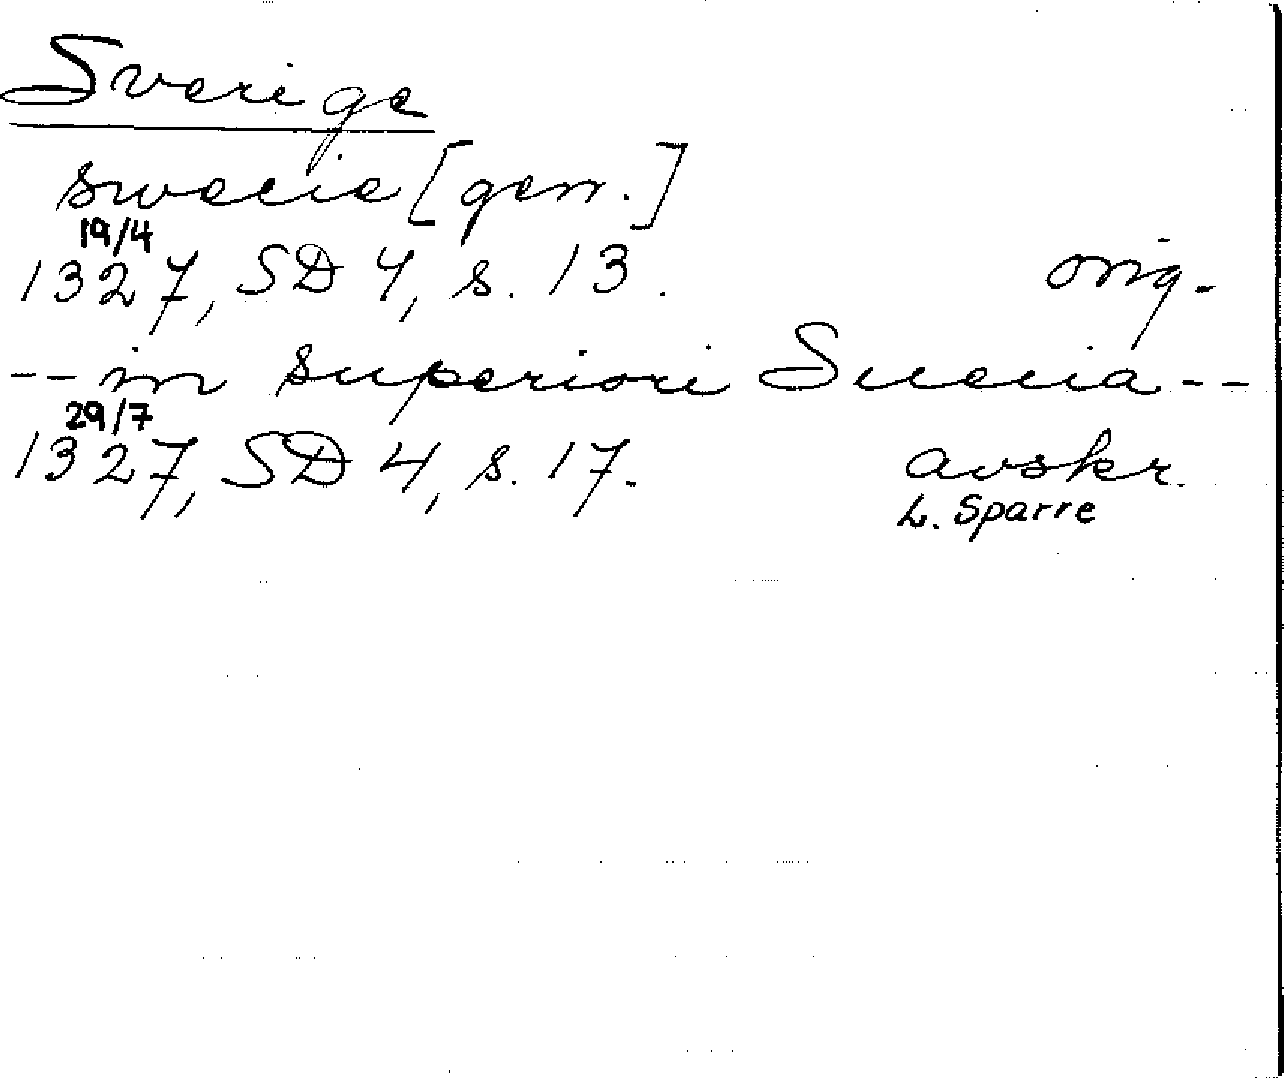 Sverige
swecie [gen.]
19/4
1327, SD 4, s. 13. orig.
-- in superiori Suecia --
29/7
1327, SD 4, s. 17. avskr.
L. Sparre